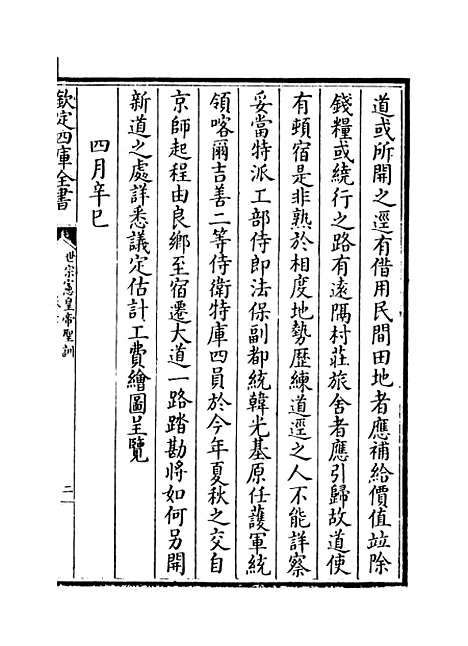 道或所開之逕有借用民間田地者應補給價值竝除
錢糧或繞行之路有遠隔村莊旅舍者應引歸故道使
有頓宿是非熟於相度地勢歷練道逕之人不能詳察
妥當特派工部侍郎法保副都統韓光基原任䕶軍統
領喀爾吉善二等侍衛特庫四員於今年夏秋之交自
京師起程由良鄉至宿遷大道一路踏勘將如何另開
新道之處詳悉議定估計工費繪圖呈覽
四月辛巳
欽定四庫全書
世宗憲皇帝聖訓
二